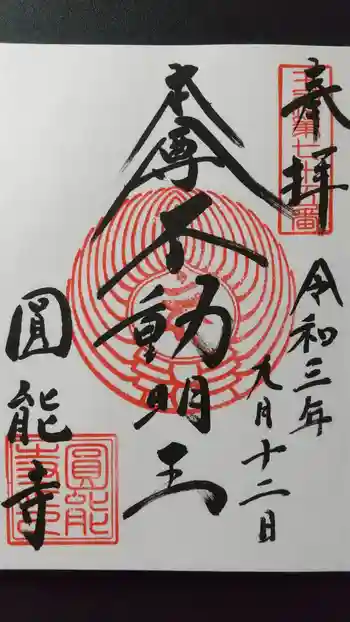 奉拝
令和三年
九月十二日
本尊不動明王
圓能寺
圓能寺印